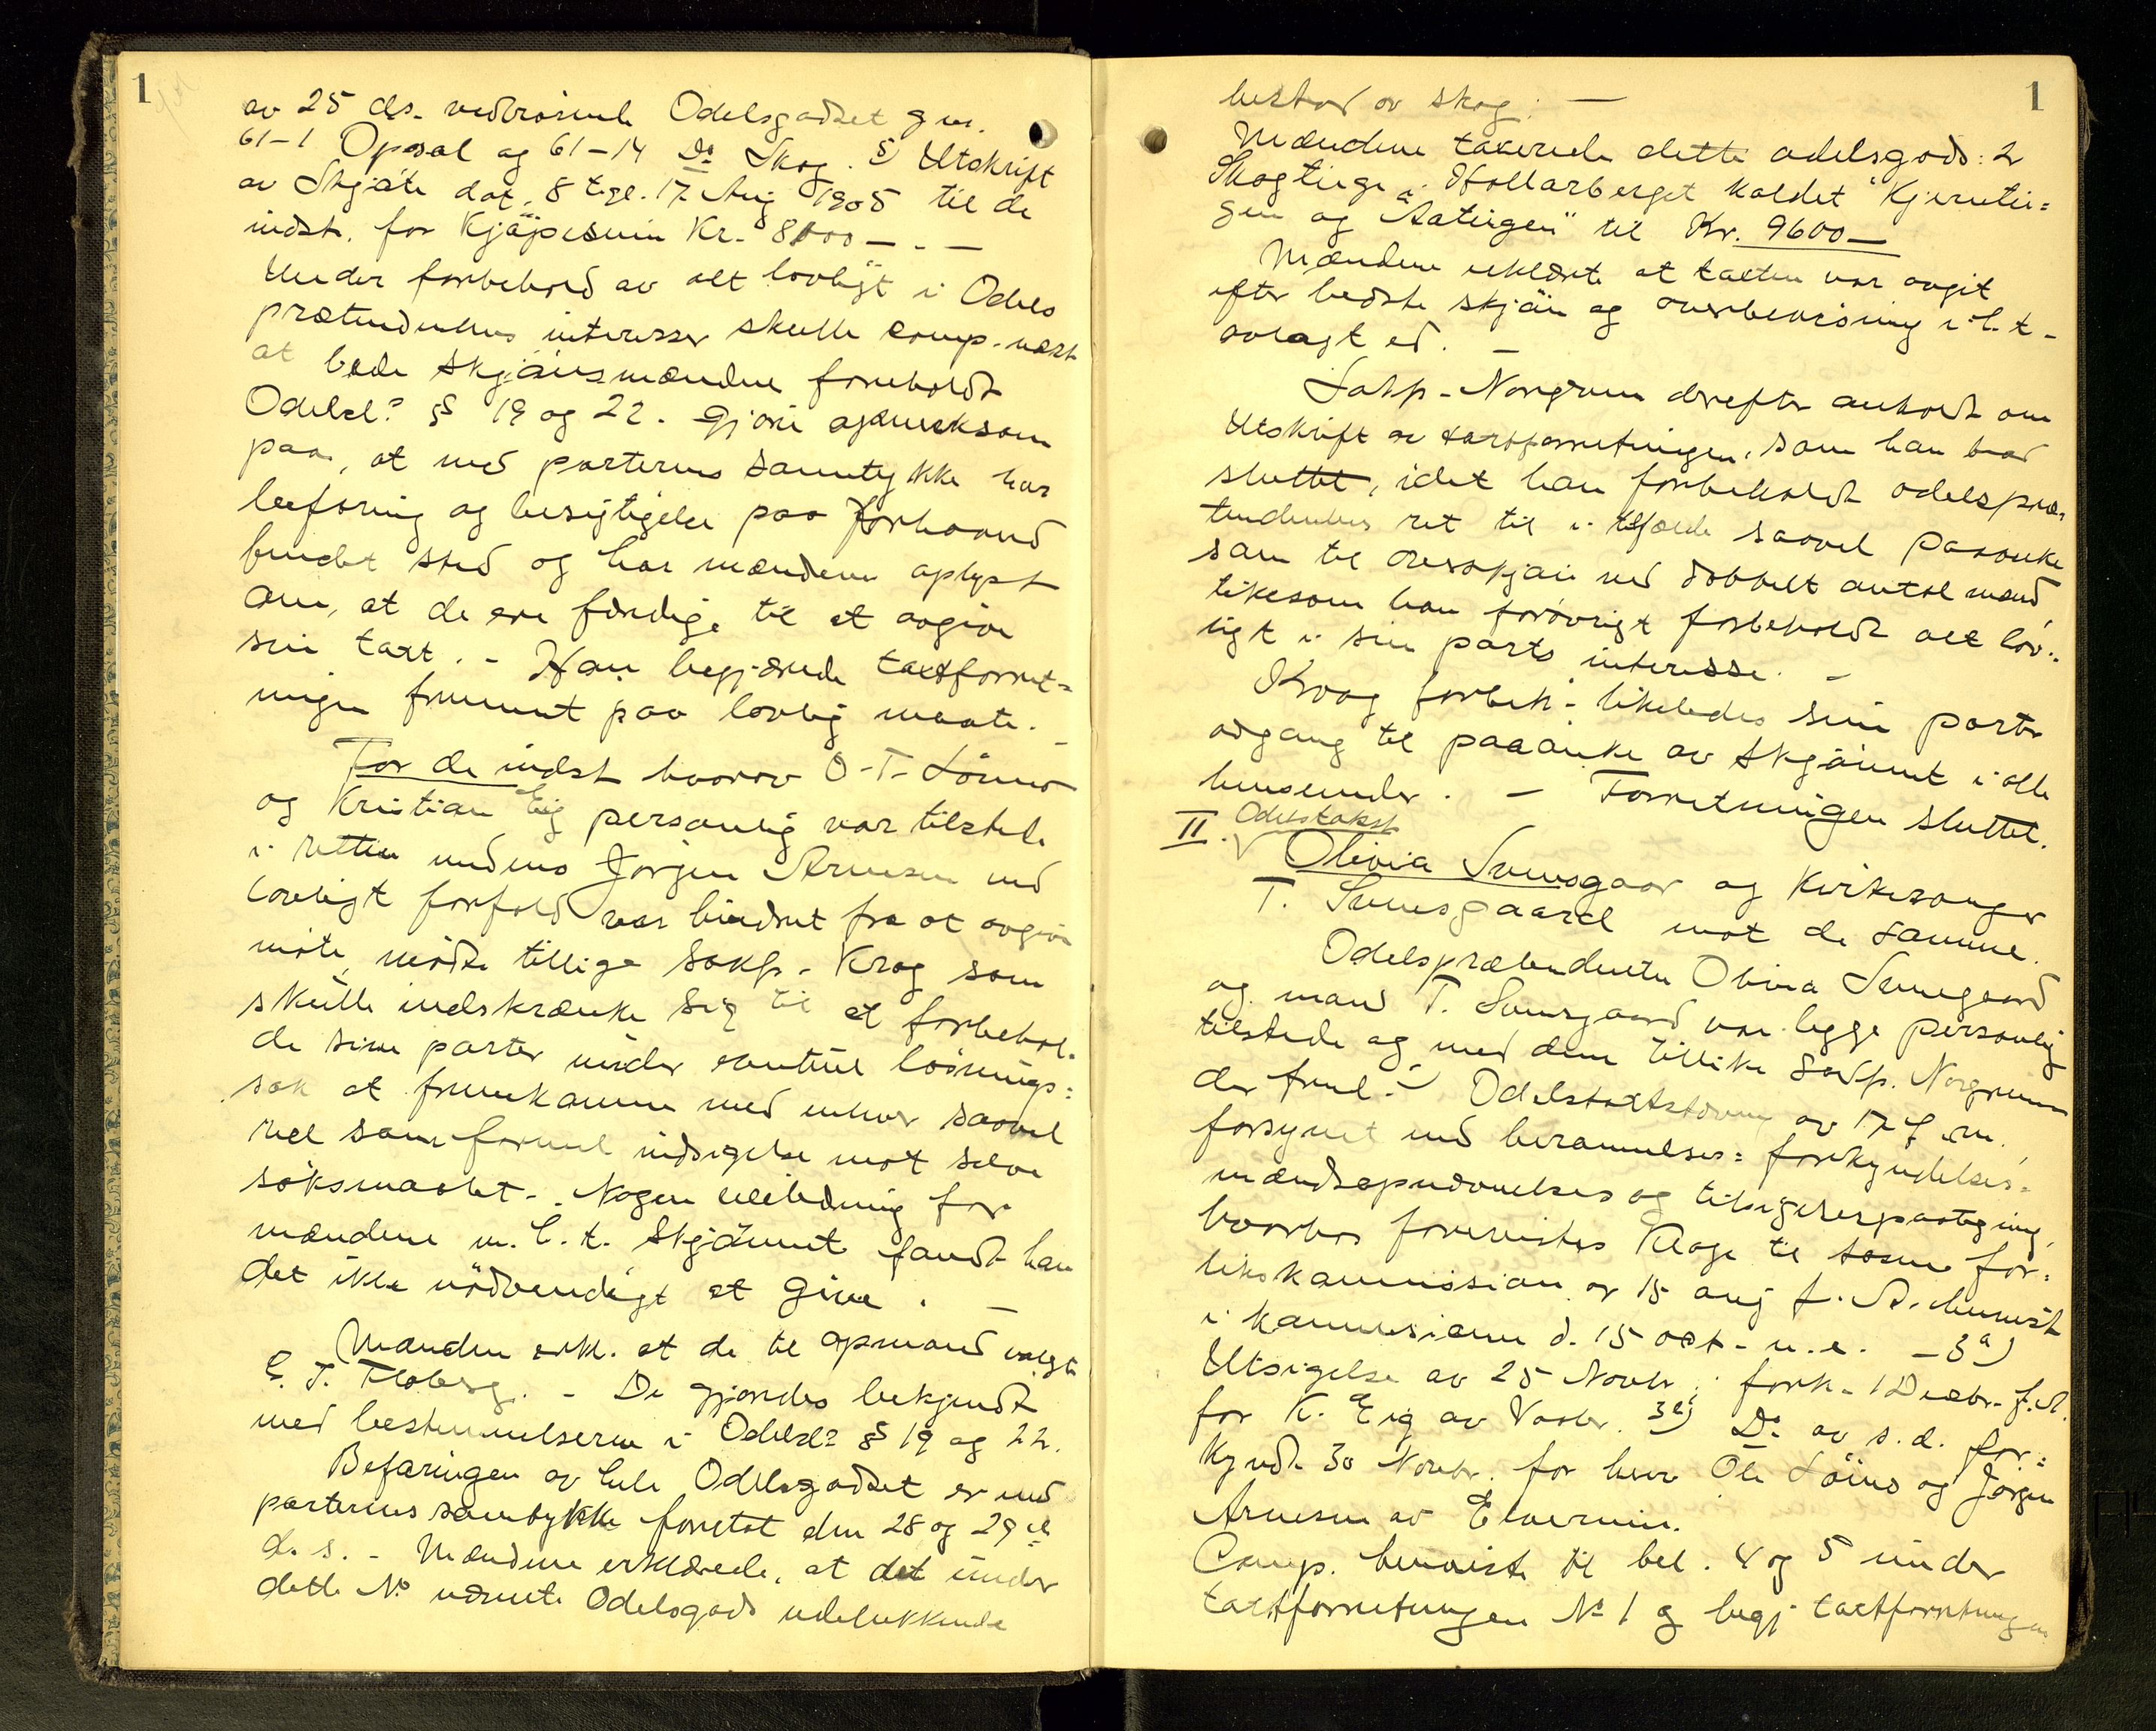 1
av 25 ds. vedrörende Odelsgodset g no.
61-1 Opsal og 61-14 Do Skog. 5) Utskrift
av Skjöte dat. 8 tgl. 17. Aug 1905 til de
indst. for Kjöpesum Kr. 8000 - . -
Under forbehold av alt lovligt i Odels
prætendentens interesser skulle comp. nærst
at bede skjönsmændene foreholdt
Odelsl? §§ 19 og 22. Gjöre opmerksom
paa, at med parternes samtykke har
befaring og besigtigelse paa forhaand
fundet sted og har mændene oplyst
om, at de ere færdige til at avgive
sin taxt. - Han begjærede taxtforret=
ningen fremmet paa lovlig maate. -
For de indst hvorav O-T- Löines
og Kristian Eig personlig var tilstede
i retten medens Jörgen Arnesen ved
lovligt forfald var hindret fra at avgive
möte, mödte tillige sakf. Krog som
skulle indskrænke sig til at forbehol-
de sine parter under eventuel lösnings=
sak at fremkomme med enhver saavel
reel som formel indsigelse mot selve
söksmaalet. - Nogen veiledning for
mændene m. h. t. skjönnet fandt han
det ikke nödvendigt at give. -
Mændene erkl. at de til opmand valgte
E. T. Floberg. - De gjordes bekjendt
med bestemmelserne i Odelsl? §§ 19 og 22.
Befaringen av hele Odelsgodset er med
parternes samtykke foretat den 28 og 29de
d. s. - Mændene erklærede, at det under
dette No nævnte Odelsgods udelukkende
1
bestod av skog. -
Mændene taxerede dette odelsgods: 2
Skogteige i Hollarberget kaldet "Kjerntei=
gen og Aateigen" til Kr. 9600 -
Mændene erklærte at taxten var avgit
efter bedste skjön og overbevisning i h. t.
avlagt ed. -
Sakf. Norgrum derefter anholdt om
Utskrift av taxtforretningen, som han bad
sluttet, idet han forbeholdt odelspræ-
tendentens ret til i tilfælde saavel paaanke
som til overskjön med dobbelt antal mænd
likesom han forövrigt forbeholdt alt lov-
ligt i sin parts interesse. -
Krog forbeh. likeledes sine parter
adgang til paaanke av skjönnet i alle
henseender. - Forretningen sluttet.
Odelstakst
II. Olivia Svensgaar og Kirkesanger
T. Svensgaard mot de samme.
Odelsprætendenten Olivia Svensgaard
og mand T. Svensgaard var begge personlig
tilstede og med dem tillike sakf. Norgrum
der freml. - 1) Odelstaxtstevning av 17 f. m.
forsynet med berammelses= forkyndelses-
mændsopnævnelses og tilsigelsespaategning,
hvorhos forevistes Klage til samme for=
likskommission av 15 aug f. A. henvist
i kommissionen d. 15 oct - n. e. - 3a)
Utsigelse av 25 Novbr. fork. 1 Decbr. f. A.
for K. Eig av Vaaler. 3b) Do av s. d. for=
kyndt 30 Novbr. for herr Ole Löines og Jörgen
Arnesen av Elverum.
Comp. henviste til bel. 4 og 5 under
taxtforretningen No 1 g begj taxtforretningen